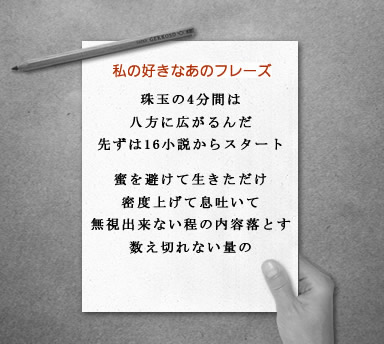 私の好きなあのフレーズ
珠玉の4分間は
八方に広がるんだ
先ずは16小説からスタート
蜜を避けて生きただけ
密度上げて息吐いて
無視出来ない程の内容落とす
数え切れない量の